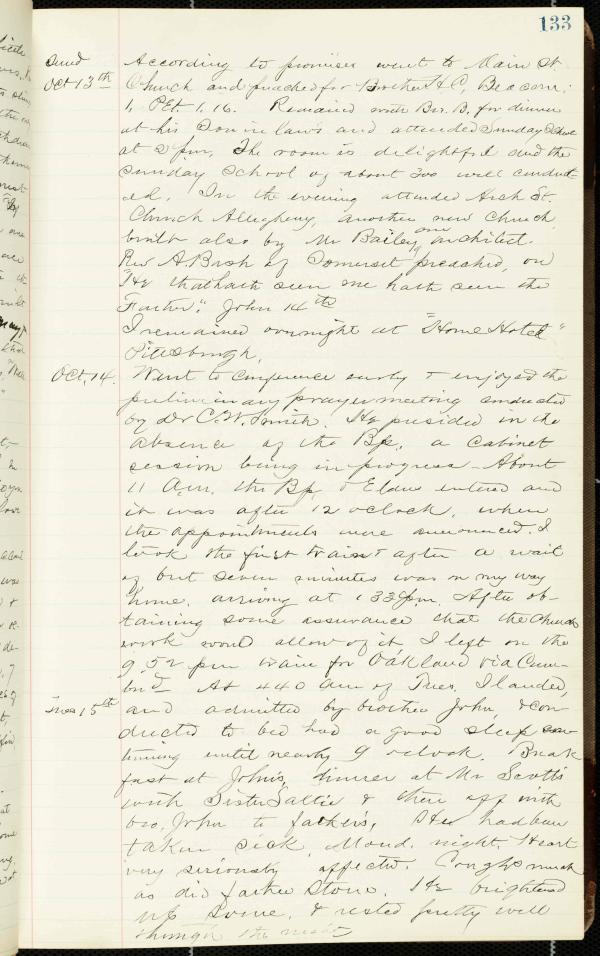 133
Sund According to promise went to Main St.
Oct 13th Church and preached for Brother H.C. Beacom:
1, Pet. 1.16. Remained with Bro. B. for dinner
at his Son in laws and attended Sunday School
at 2 pm. The room is delightful and the
Sunday School of about 300 well conduct-
ed. In the evening attended Arch St.
Church Allegheny, another new Church,
built also by Mr Bailey, our architect.
Rev A. Bash of Somerset preached, on
"He that hath seen me hath seen the
Father". John 14th
I remained overnight at "Home Hotel"
Pittsburgh.
Oct. 14. Went to Conference early & enjoyed the
preliminary prayer meeting conducted
by Dr C. W. Smith. He presided in the
absence of the Bp. a cabinet
session being in progress. About
11 A.m. the Bp. & Elders entered and
it was after 12 oclock, when
the appointments were announced. I
took the first train & after a wait
of but seven minutes was on my way
home. arriving at 1 33 pm. After ob-
taining some assurance that the church
work would allow of it I left on the
9.52 pm train for Oakland via Cum-
bd. At 4 40 am of Tues. I landed,
Tues 15th and admitted by brother John, & con-
ducted to bed had a good sleep con-
tinuing until nearly 9 oclock. Break
fast at John's, dinner at Mr Scotts
with Sister Sallie & then off with
bro. John to father's. He had been
taken sick Mond. night. Heart
very seriously affected. Coughs much
as did father Stone. He brightened
up some, & rested pretty well
through the night